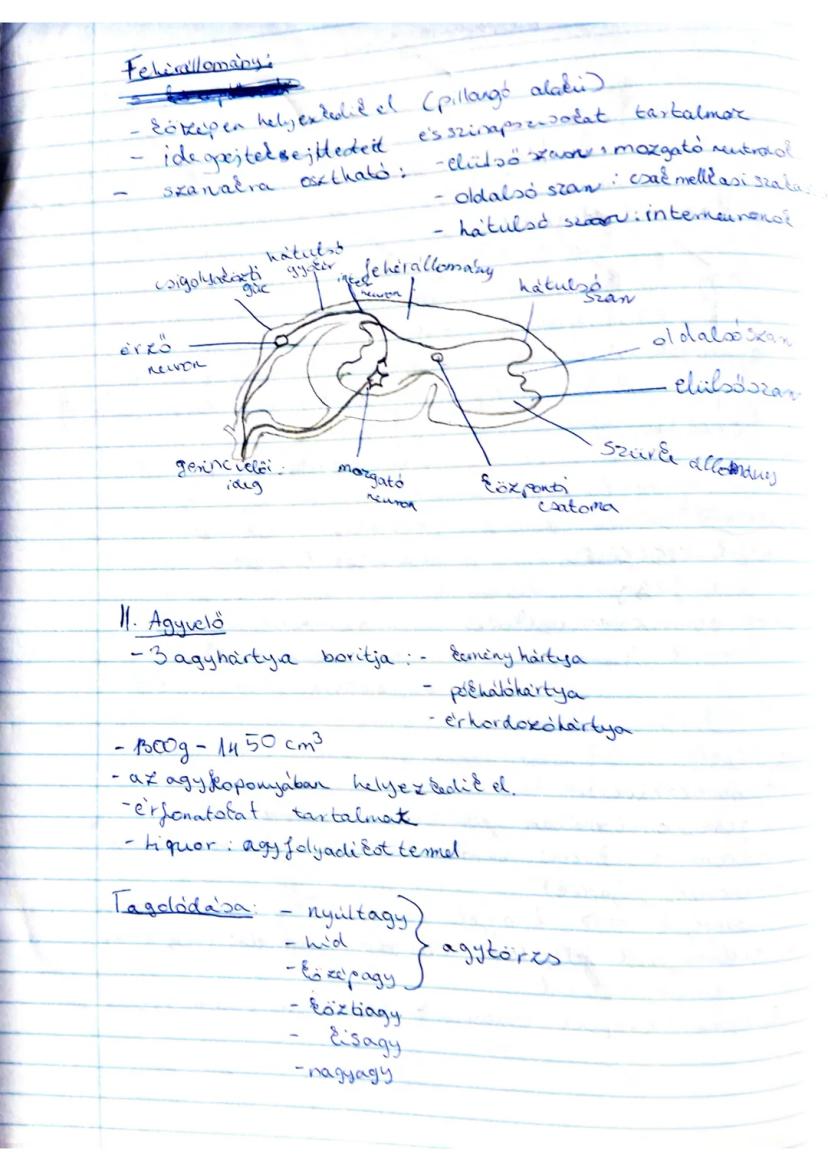 Fehérállomány:
- középen helyezkedik el (pillangó alakú)
- idegsejtek sejttesteit és szinapszisokat tartalmaz
- szarvakra osztható: - elülső szarv: mozgató neuronok
- oldalsó szarv: csak mellkasi szaka
- hátulsó szarv: interneuronok
csigolyaközti dúc
hátulsó gyökér
inter neuron
fehérállomány
hátulsó szarv
érző neuron
oldalsó szarv
elülső szarv
szürke állomány
gerincvelői ideg
mozgató neuron
központi csatorna
II. Agyvelő
- 3 agyhártya borítja: - kemény hártya
- pókhálóhártya
- érhordozóhártya
- 1300g - 1450 cm³
- az agykoponyában helyezkedik el.
- érfonatokat tartalmaz
- Liquor: agyfolyadékot termel
Tagolódása: - nyúltagy
- híd
- középagy
agytörzs
- köztiagy
- kisagy
- nagyagy